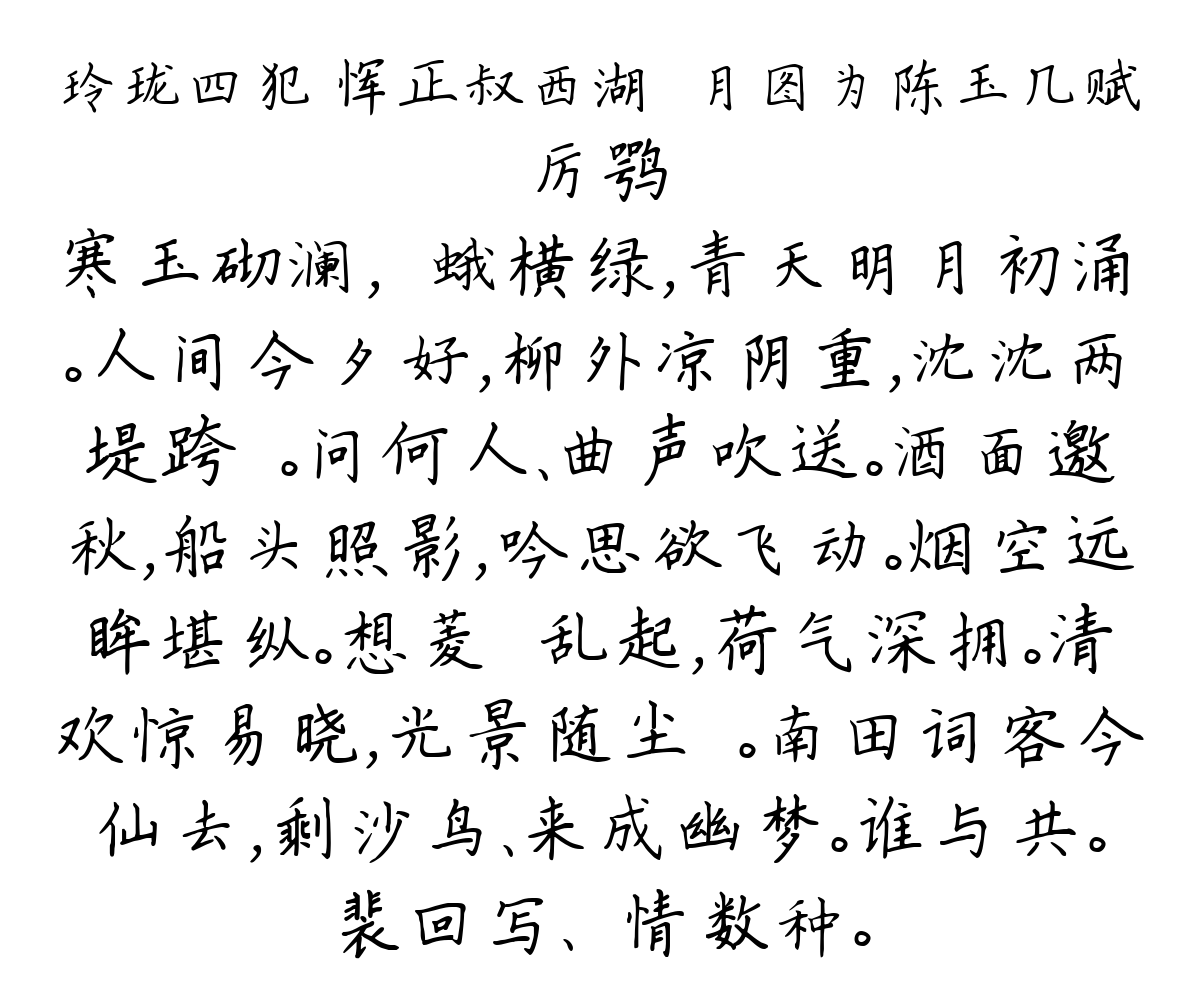 玲珑四犯 恽正叔西湖 月图为陈玉几赋
厉鹗
寒玉砌澜，蛾横绿，青天明月初涌
。人间今夕好，柳外凉阴重，沈沈两
堤跨 。问何人、曲声吹送。酒面邀
秋，船头照影，吟思欲飞动。烟空远
眸堪纵。想菱 乱起，荷气深拥。清
欢惊易晓，光景随尘 。南田词客今
仙去，剩沙鸟、来成幽梦。谁与共。
裴回写、 情数种。